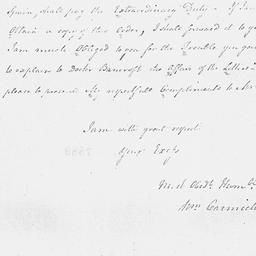 Spain, shall pay the Extraordinary Duty - If I can
Obtain a copy of this Order, I shall forward it to yo
I am much Obliged to you for the Trouble you gave
to explain to Doctor Bancroft the Affair of the Letters
please to present my respectful Compliments to
I am with great respect
Your Excy's
m.t Obed.t Hum.e
Wm Carmichael